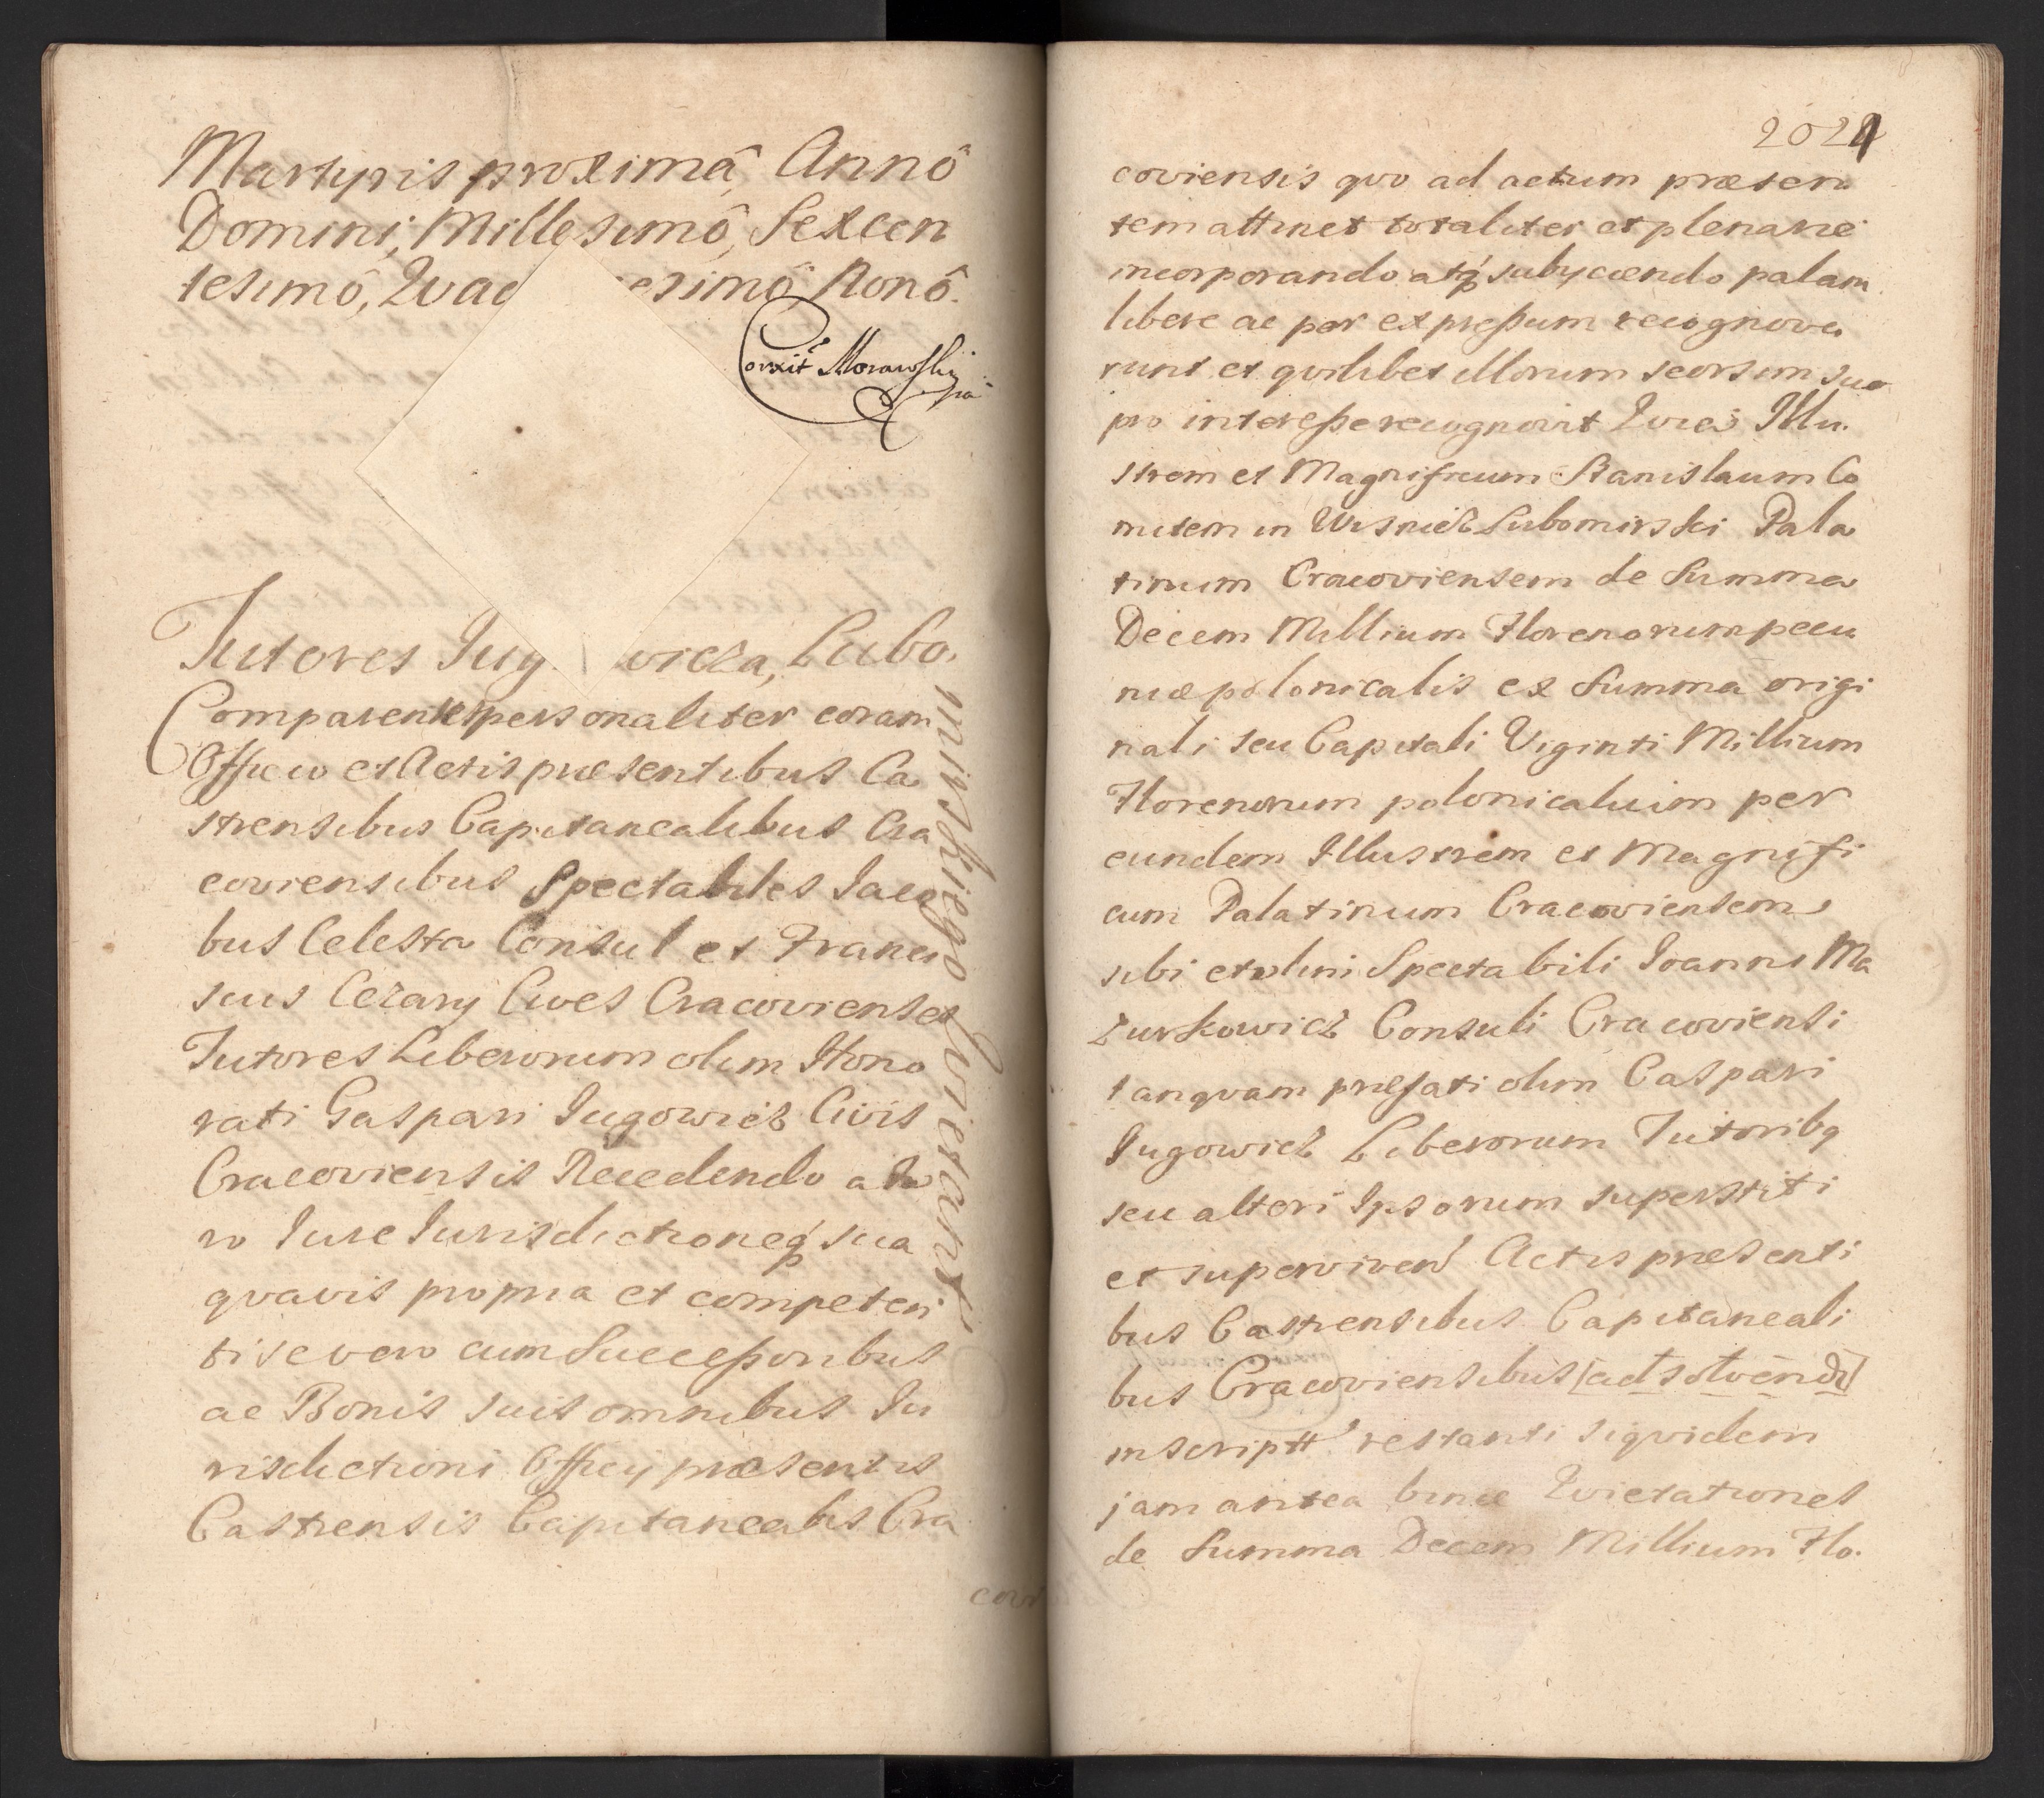 Martyris proximâ, Annô
Domini, Millesimô, Sexcen
tesimô, Quad esimô Nonô.
Corrixit Morawskij
Tutores Jug wicza, Lubo.
mirskiego Quietant
Comparentes personaliter coram
Officio et Actis præsentibus Ca
strensibus Capitanealibus Cra
coviensibus Spectabiles Jaco
bus Celesta Consul et Franci
scus Cezary Cives Cracovienses
Tutores Liberorum olim Hono
rati Gaspari Jugowicz Civis
Cracoviensis Recedendo a
ro Iure Iurisdictioneq́ sua
qvavis propria et competen
ti se vero cum Succeßoribus
ac Bonis suis omnibus Iu
risdictioni Officij præsentis
Castrensis Capitanealis Cra
covi
2021
coviensis qvo ad actum præsen
tem attinet totaliter et plenarie
incorporando atq́ subijciendo palam
libere ac per expreßum recognove
runt et qvilibet illorum seorsim suo
pro intereße recognovit Quia Illu.
strem et Magnificum Stanislaum Co
mitem in Wisnicz Lubomirski Pala
tinum Cracoviensem de Summa
Decem Millium Florenorum pecu
niæ polonicalis ex Summa origi
nali seu Capitali Viginti Millium
Florenorum polonicalium per
eundem Illustrem et Magnifi
cum Palatinum Cracoviensem
sibi et olim Spectabili Ioanni Ma
zurkowicz Consuli Cracoviensi
tanqvam præfati olim Caspari
Jugowicz Liberorum Tutoribq
seu alteri Ipsorum superstiti
et superviven Actis præsenti
bus Castrensibus Capitaneali
bus Cracoviensibus [ad solvendũ]
inscriptt restanti siqvidem
jam antea binæ Quietationes
de Summa Decem Millium Flo.